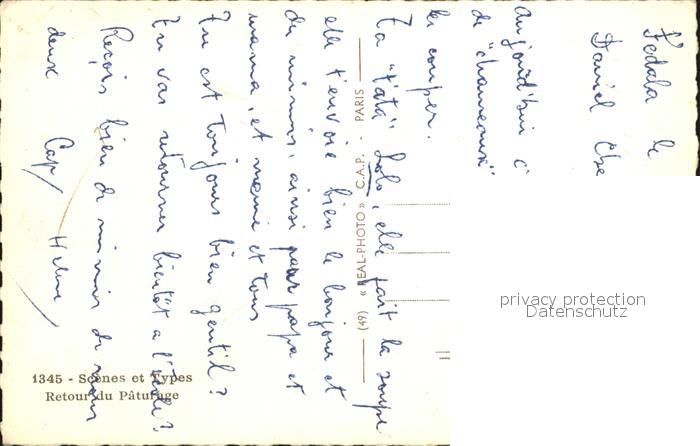 Fedala le
Daniel
Aujourd'hui c
de "chameaux"
les couper.
Ta "tata" Lolo, elle fait la soupe
elle t'envoie bien le bonjour et
du mimis, ainsi pour papa et
mama, et meme et tous
Tu est toujours bien gentil?
Tu vas retourner bientôt a l'école?
Reçois bien de mimis de nous
deux
(49) « REAL-PHOTO » C.A.P. - PARIS
1345 - Scènes et Types
Retour du Pâturage
privacy protection
Datenschutz